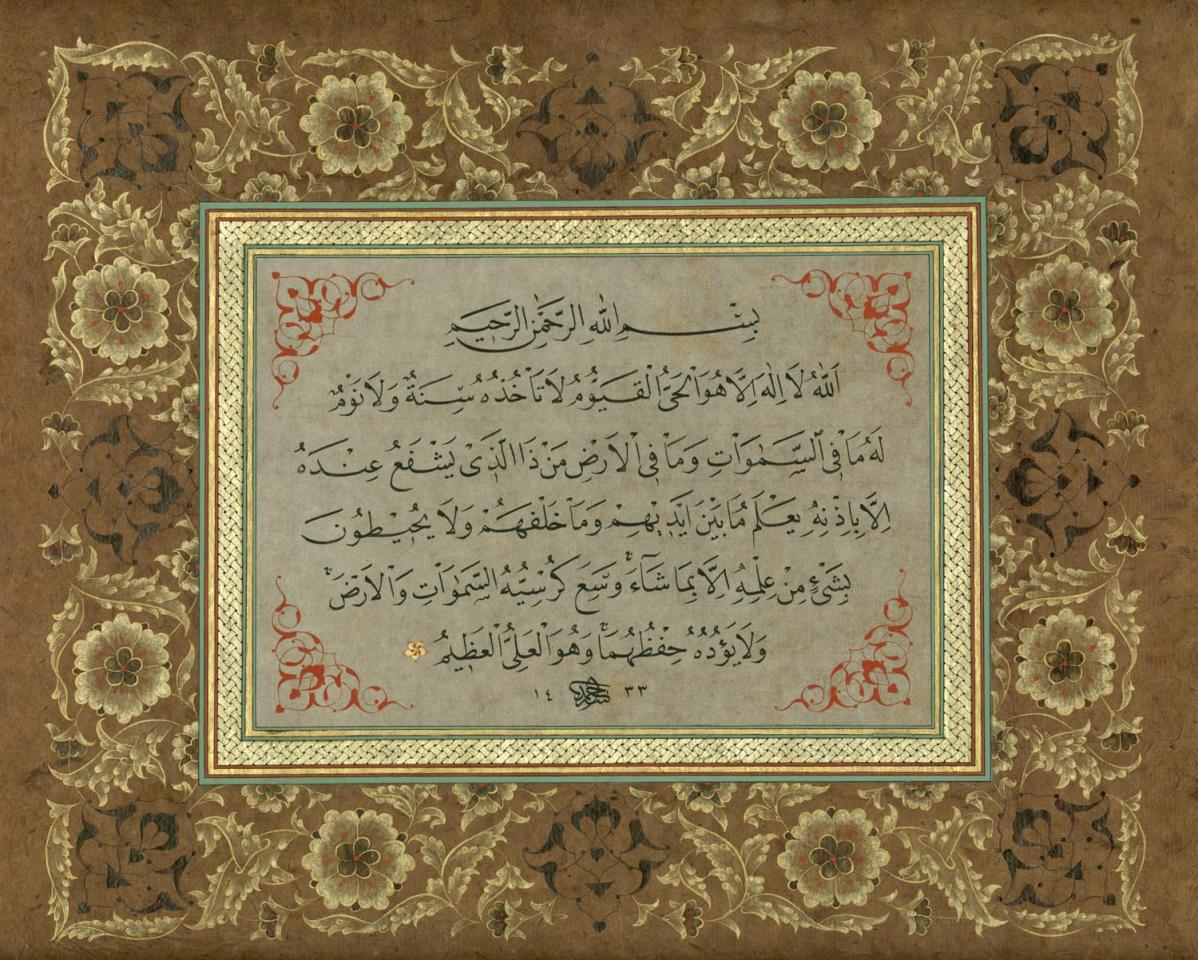 بِسْمِ اللهِ الرَّحْمٰنِ الرَّحِيمِ
اَللهُ لَا اِلٰهَ اِلَّا هُوَ اَلْحَيُّ الْقَيُّومُ لَا تَأْخُذُهُ سِنَةٌ وَلَا نَوْمٌ
لَهُ مَا فِي السَّمٰوَاتِ وَمَا فِي الْاَرْضِ مَنْ ذَا الَّذِي يَشْفَعُ عِنْدَهُ
اِلَّا بِاِذْنِهِ يَعْلَمُ مَا بَيْنَ اَيْدِيهِمْ وَمَا خَلْفَهُمْ وَلَا يُحِيطُونَ
بِشَيْءٍ مِنْ عِلْمِهِ اِلَّا بِمَا شَاءَ وَسِعَ كُرْسِيُّهُ السَّمٰوَاتِ وَالْاَرْضَ
وَلَا يَؤُدُهُ حِفْظُهُمَا وَهُوَ الْعَلِيُّ الْعَظِيمُ
١٤ ٣٣